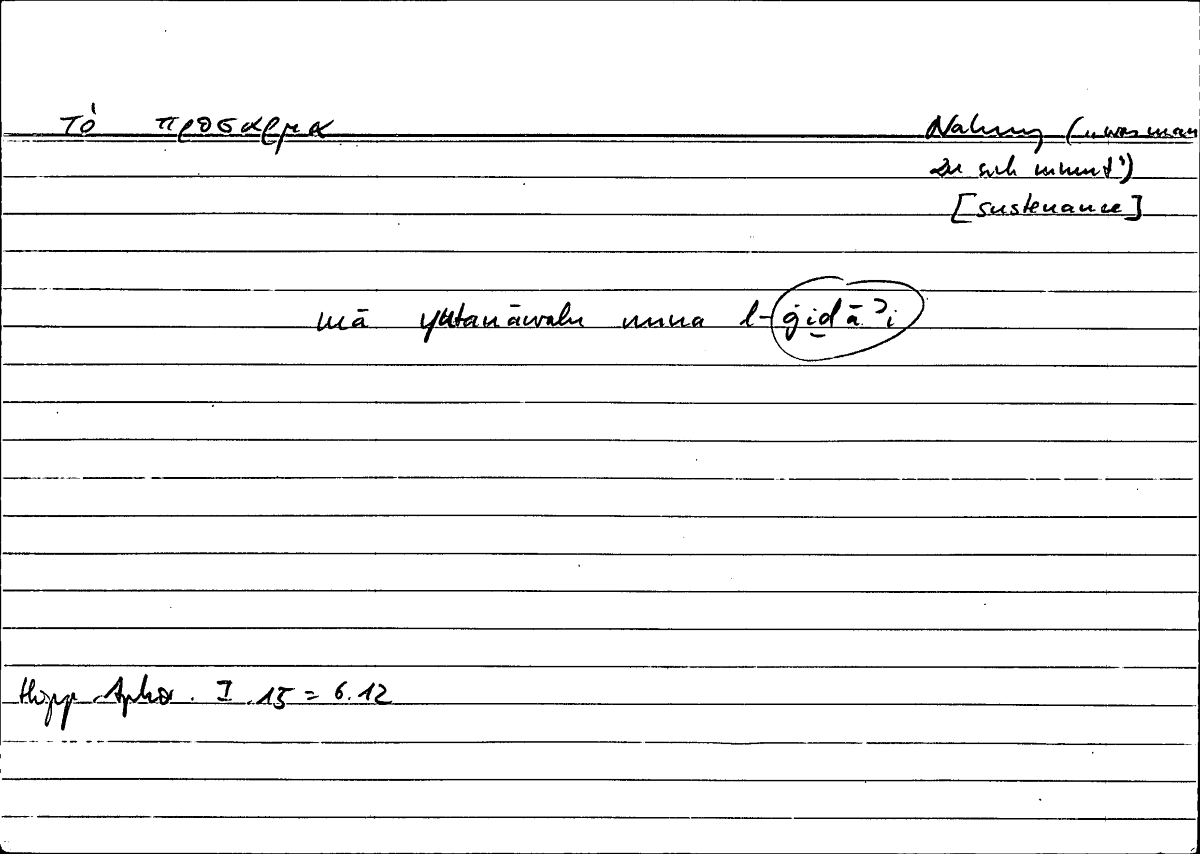 τό προσαρμα Nahrung („was man
zu sich nimmt")
[sustenance]
mā yutanāwalu mina l-ġiḏāʾi
Hipp. Aphor. I .15 = 6.12